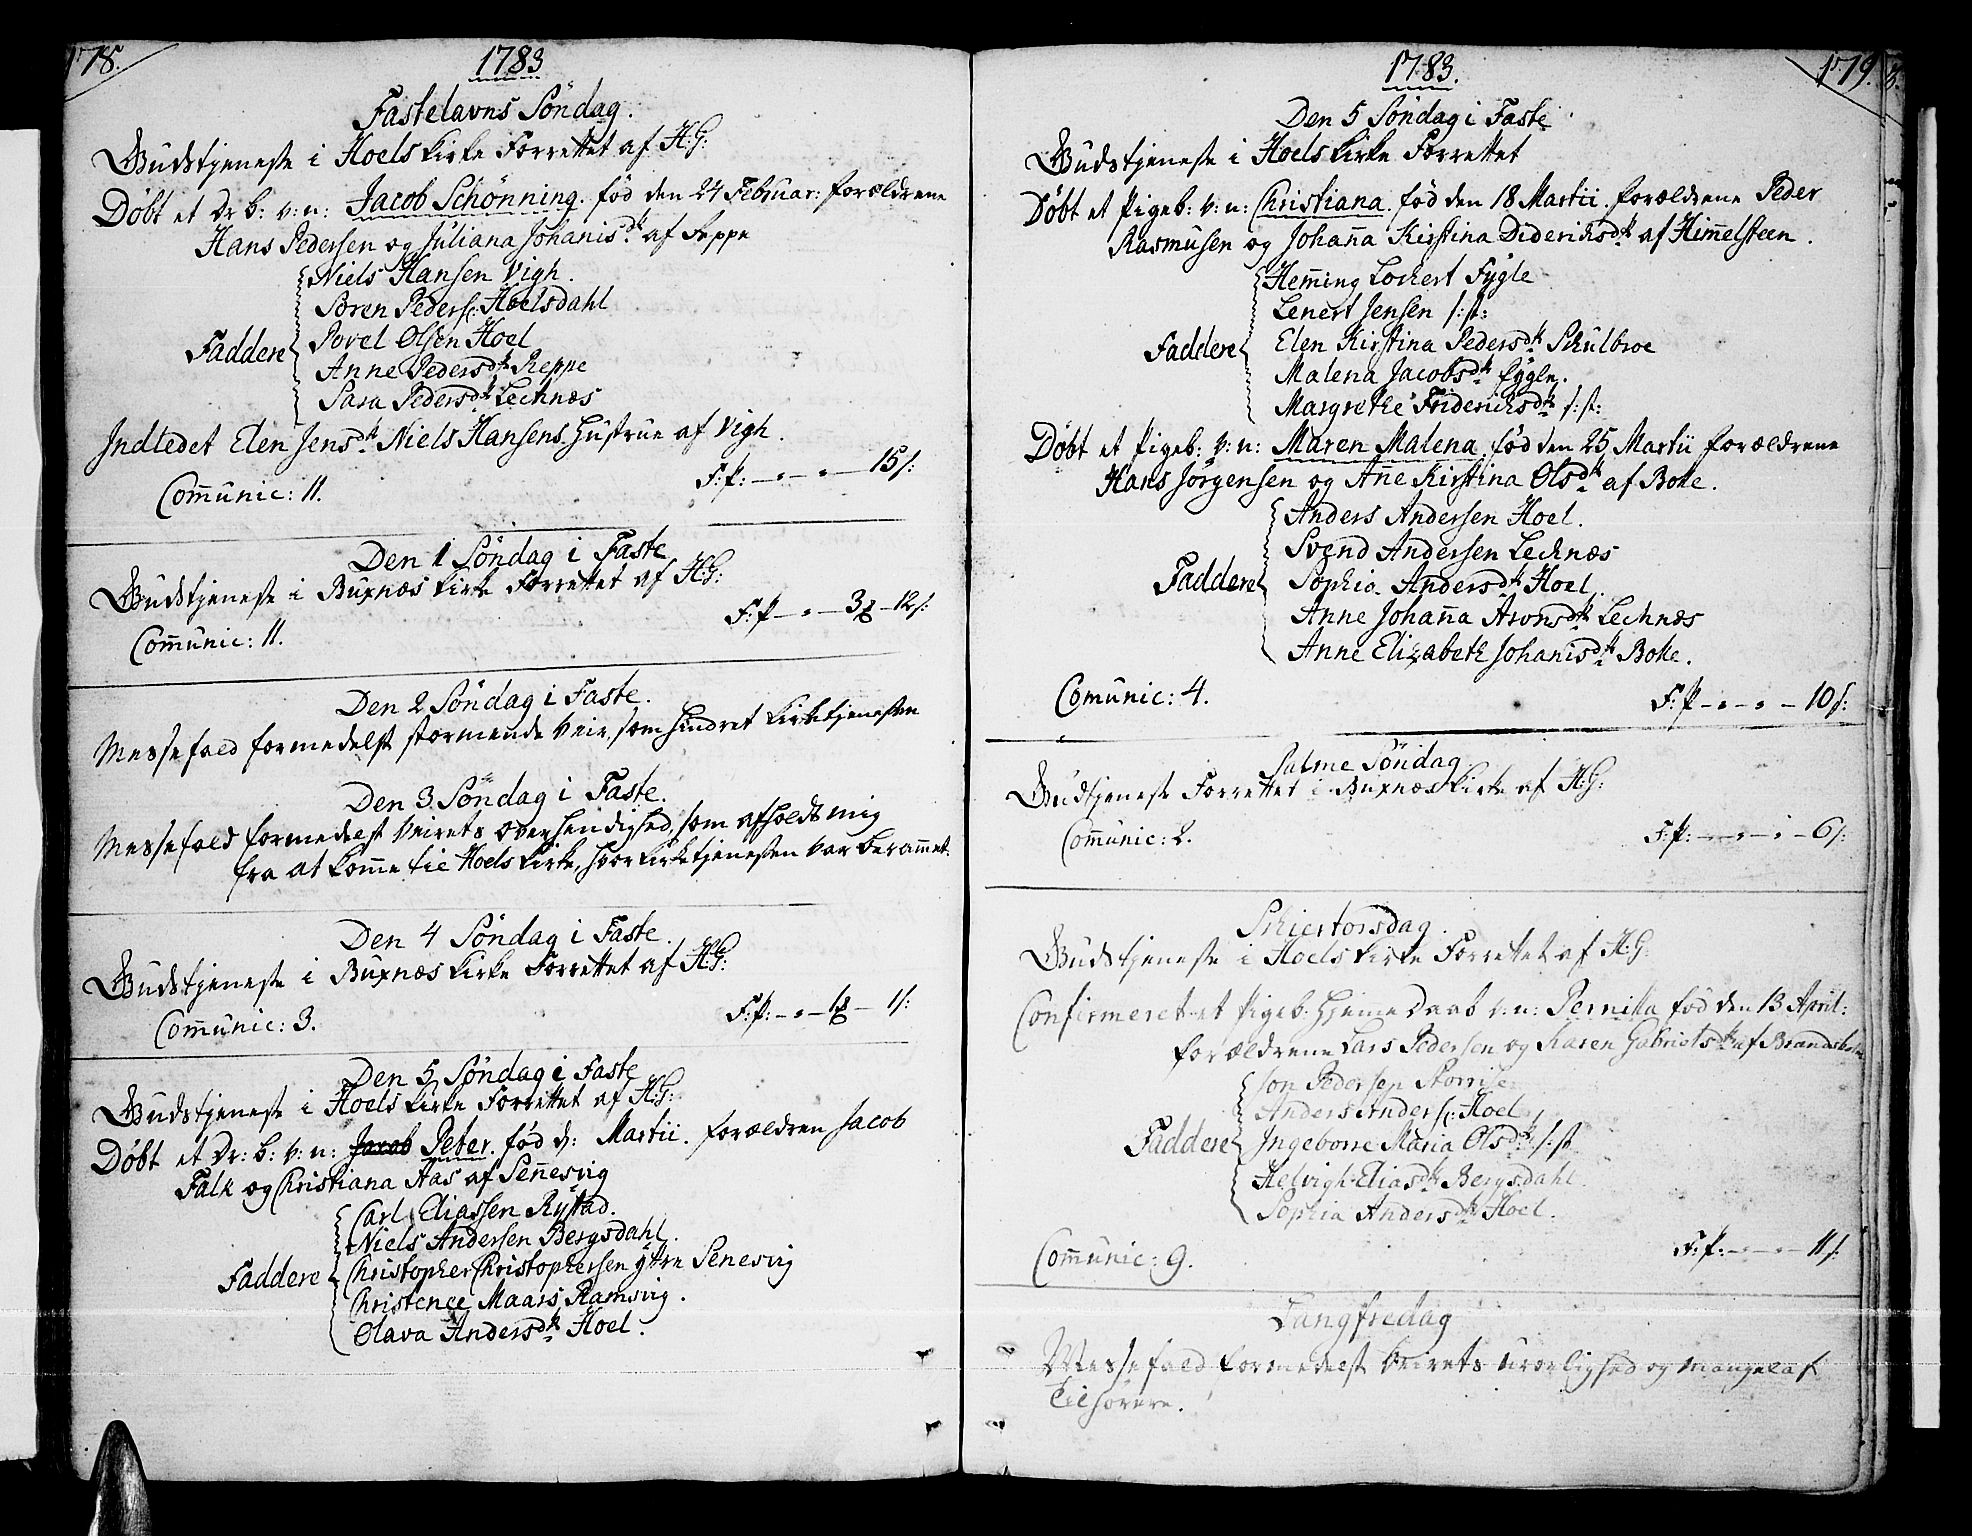 178.
1783
Fastelavns Söndag.
Gudstjeneste i Hoels kirke Forrettet af H:G:
Döbt et Dr: b: v: n: Jacob Schönning. föd den 24 Februar: forældrene
Hans Pedersen og Juliana Johanisdtr af Reppe
Niels Hansen Vigh.
Sören Peders: Hoelsdahl
Povel Olsen Hoel
Faddere
Anne Pedersdtr Reppe
Sara Pedersdtr Lechnæs
Indledet Elen Jensdtr Niels Hansens Hustrue af Vigh.
F: P: — " — " — 15 s:
Com̄unic: 11.
Den 1 Söndag i Faste
Gudstjeneste i Buxnæs kirke Forrettet af H:G:
F: P — " — 3 — 12 s:
Com̄unic: 11.
Den 2 Söndag i Faste.
Messefald formedelst stormende Veir, som hindret kirketjenesten
Den 3. Söndag i Faste.
Messefald formedelst Veirets Overhendighed, som afholdt mig
fra at kom̄e til Hoels kirke, hvor kirketjenesten var beram̄et.
Den 4 Söndag i Faste.
Gudstjeneste i Buxnæs kirke Forrettet af H:G:
F: P: — " — 1 — 1 s:
Com̄unic: 3.
Den 5 Söndag i Faste
Gudstjeneste i Hoels kirke Forrettet af H:G:
Döbt et Dr: b: v: n: Jacob Peter. föd d: Martii. forældren Jacob
Falk og Christiana Aas af Sen̄esvig
Carl Eliassen Rystad.
Niels Andersen Bergsdahl.
Faddere Christopher Christophersen yttre Senesvig
Christence Maars Ramsvig.
Olava Andersdtr Hoel.
179.
1783.
Den 5 Söndag i Faste
Gudstjeneste i Hoels kirke Forrettet
Döbt et Pigeb: v: n: Christiana. föd den 18 Martii. forældrene Peder
Rasmusen og Johan̄a Kirstina Dideriksdtr af Him̄elsteen.
Hem̄ing Lockert Fygle
Lenert Jensen s: st:
Faddere Elen Kirstina Pedersdtr Schulbroe
Malena Jacobsdtr Fygle.
Margrethe Friderichsdtr s: st:
Döbt et Pigeb: v: n: Maren Malena. föd den 25 Martii forældrene
Hans Jörgensen og An̄e Kirstina Olsdtr af Bolle.
Anders Andersen Hoel.
Svend Andersen Lechnæs
Faddere Sophia Andersdtr Hoel.
Anne Johan̄a Aronsdtr Lechnæs
Anne Elizabeth Johanisdtr Bolle.
Comunic: 4.
F: P — " — " — 10 s:
Palme Söndag
Gudstjeneste Forrettet i Buxnæs kirke af H:G:
Com̄unic: 2.
F: P: — " — " — 6 s:
Skiertorsdag.
Gudstjeneste i Hoels kirke Forrettet af H:G:
Confirmeret et Pigeb: Hjem̄e Daab v: n: Pernilla föd den 13 April:
forældrene Lars Pedersen og Karen Gabrielsdtr af Brandsholm
Jon Pedersen
Anders Anders: Hoel
Faddere Ingeborre Maria Olsdtr s: st
Helvigh Eliasdtr Bergsdahl.
Sophia Andersdtr Hoel.
F: P: — " — " — 11 s:
Com̄unic: 9.
Langfredag
Messefald formedelst Veirets urolighed og mangel af
Tilhörere.